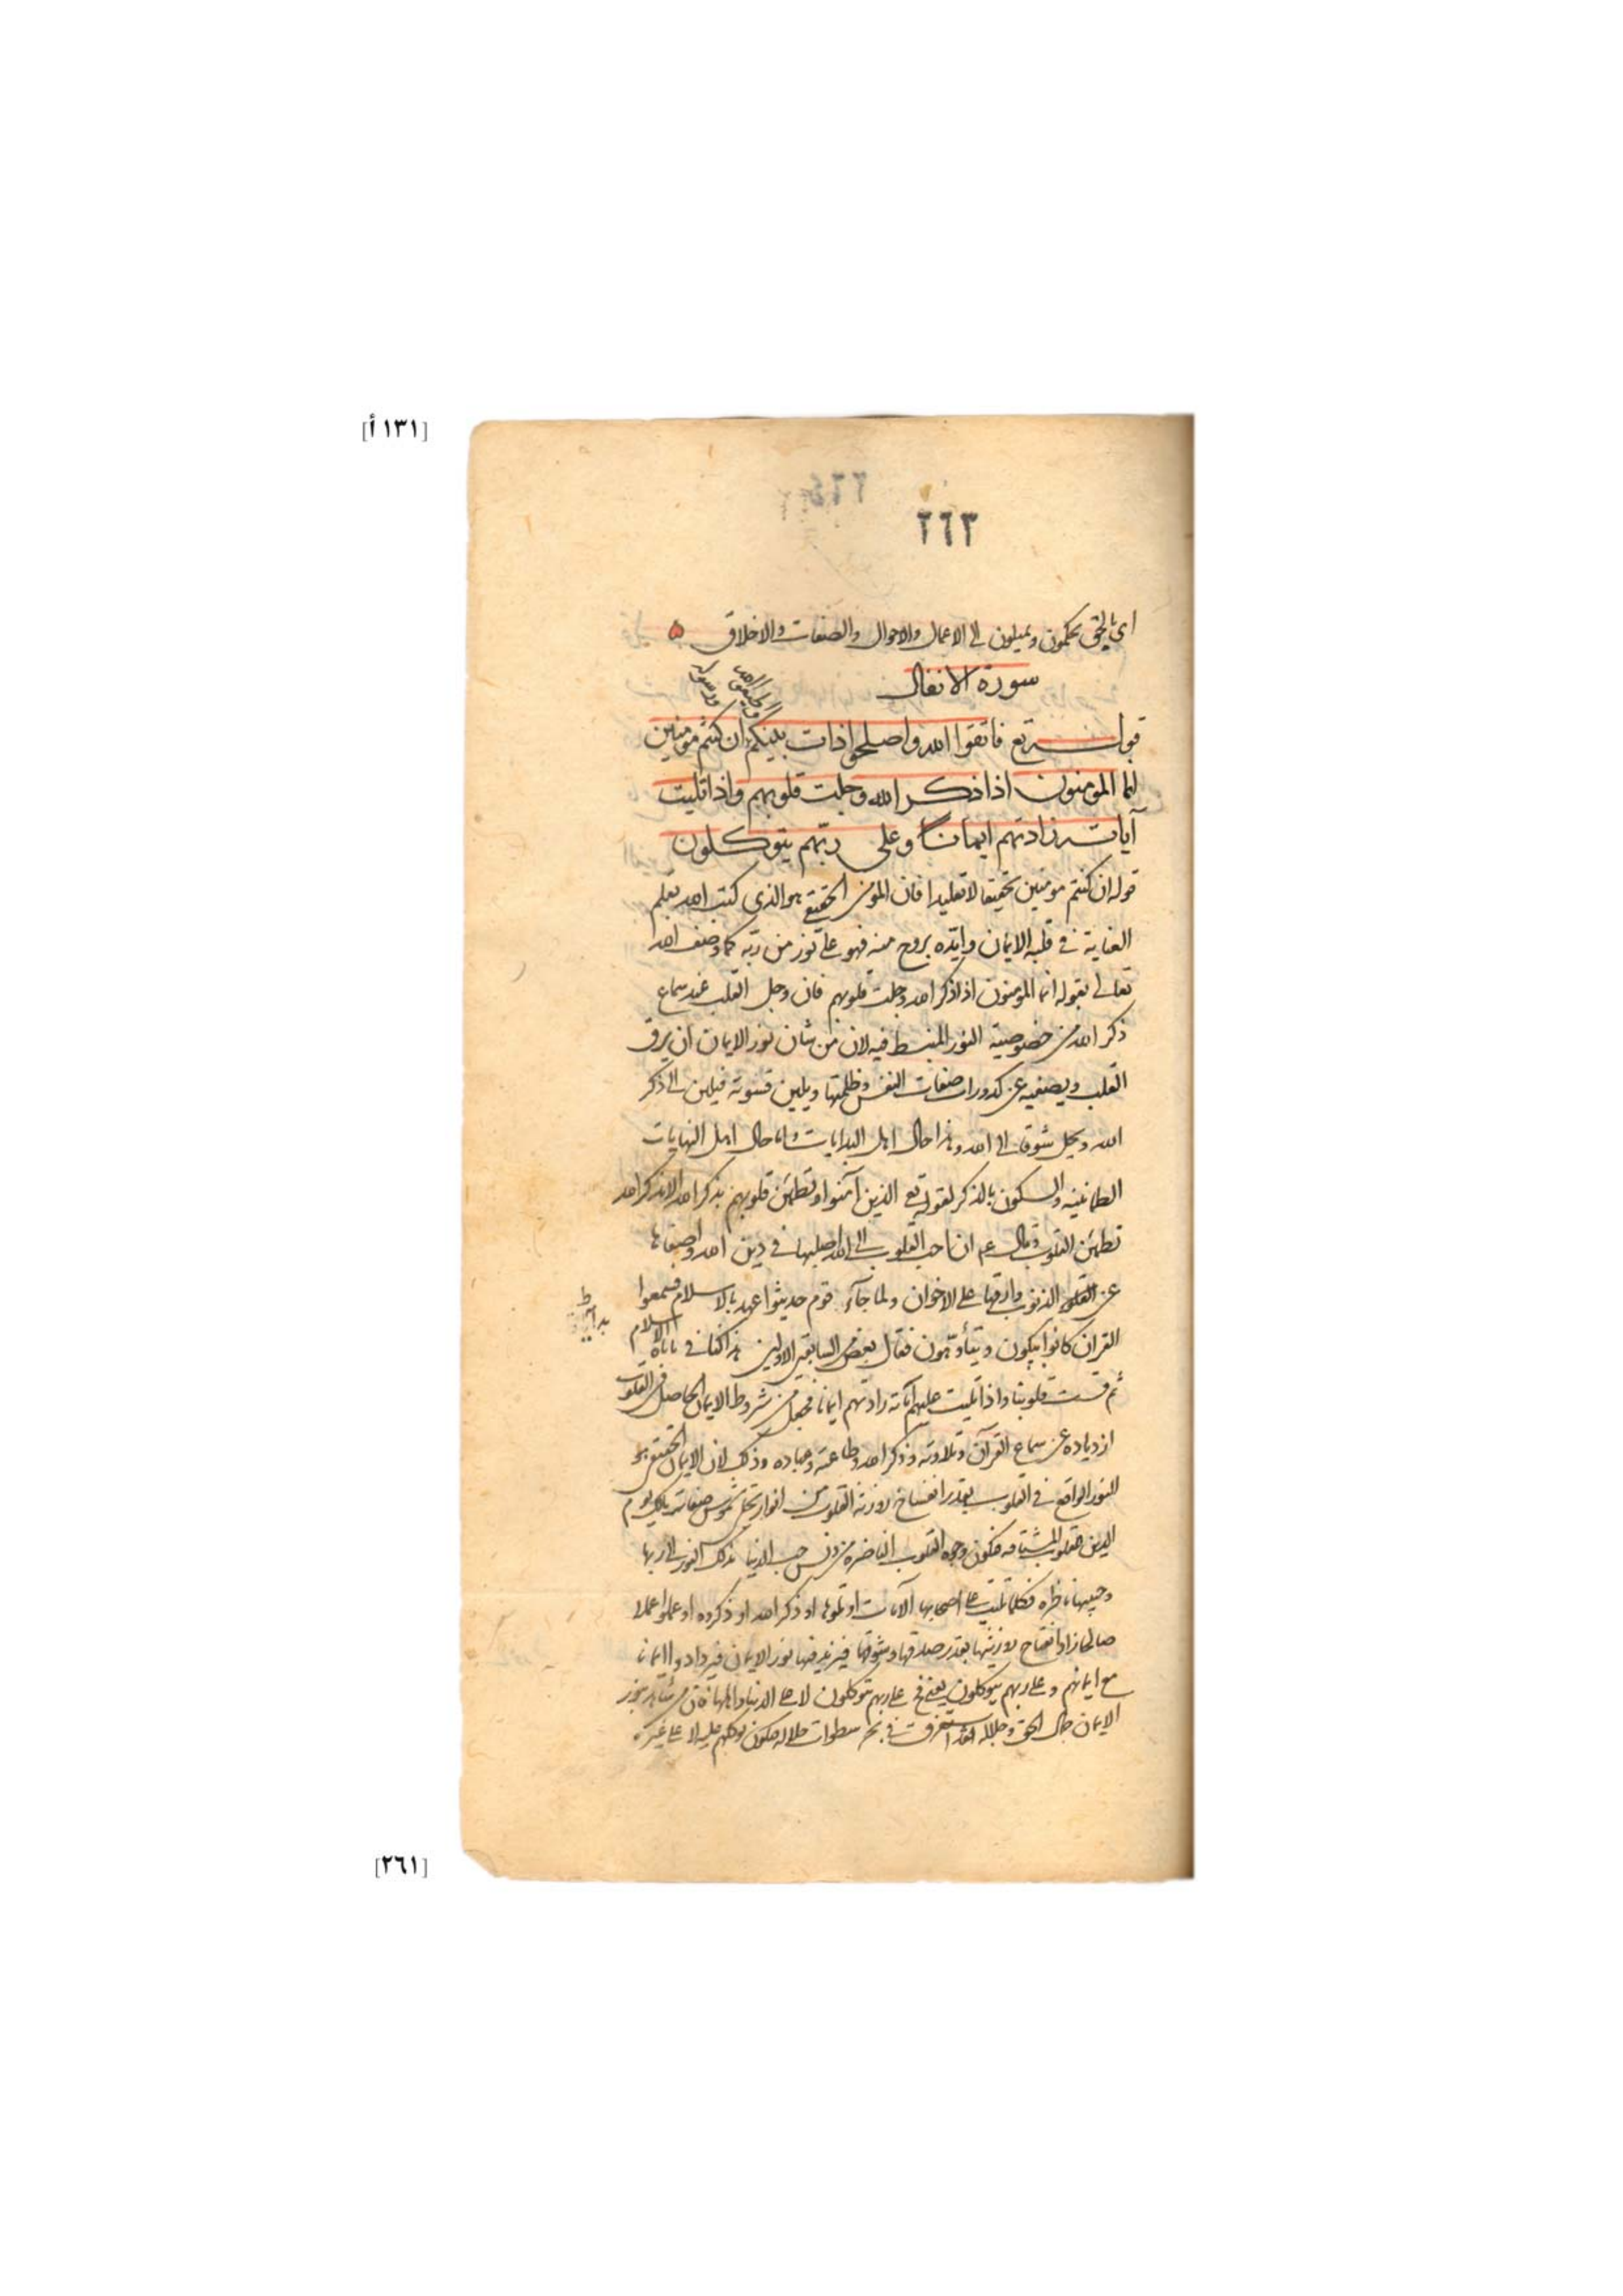 [١٣١ أ]
٢٦٣
اى بالحق يحكمون ويميلون الى الاعمال والاحوال والصفات والاخلاق
سورة الانفال
واطيعوا الله
ورسوله
قوله تع فاتقوا الله واصلحوا ذات بينكم ان كنتم مؤمنين
انما المؤمنون اذا ذكر الله وجلت قلوبهم واذا تليت
آياته زادتهم ايمانا وعلى ربّهم يتوكلون
قوله ان كنتم مومنين تحقيقا لا تقليدا فان المومن الحقيقى هو الذى كتب الله بقلم
العناية فى قلبه الايمان وايّده بروح منه فهو على نور من ربّه كما وصف الله
تعالى بقوله انما المؤمنون اذا ذكر الله وجلت قلوبهم فان وجل القلب عند سماع
ذكر الله من خصوصية النور المنبسط فيه لان من شان نور الايمان ان يرق
القلب ويصفيه عن كدورات صفات النفس وظلمتها ويلين قسوته فيلين الى ذكر
الله ويجل شوقا الى الله وهذا حال اهل البدايات واما حال اهل النهايات
الطمانينه والسكون بالذكر لقوله تع الذين آمنوا وتطمئن قلوبهم بذكر الله الا بذكر الله
تطمئن القلوب وقال عم ان احب القلوب الى الله اصلبها فى دين الله واصفاها
عن الذنوب وارقها على الاخوان ولما جآء قوم حديثوا عهد بالاسلام فسمعوا
القران كانوا يبكون ويتأوّهون فقال بعض السابقين الاولين هذا كنا فى الاسلام
ثم قست قلوبنا واذا تليت عليهم آياته زادتهم ايمانا فجعل من شروط الايمان الحاصل فى القلوب
ازدياده عن سماع القرآن وتلاوته وذكر الله وطاعته وذلك لان الايمان الحقيقى هو
النور الواقع فى القلوب بقدر انفساخ روزنة القلوب من انوار تجلى شموس صفات مالك يوم
الدين القلوب المشتاقه فتكون وجوه القلوب الناضره من دنس حب الدنيا بذلك النور الى ربها
وحبيبها ناظره فكلما تليت على اصحابها الآيات او تلوها او ذكر الله او ذكروه او عملوا عملا
صالحا زاد انفتاح روزنتها بقدر صدقها وشوقها فيزيد فيها نور الايمان فيزدادوا ايمانا
مع ايمانهم وعلى ربهم يتوكلون يعنى على ربهم يتوكلون لا على الدنيا واهلها فان من شاهد بنور
الايمان جمال الحق وجلاله فقد استغرق فى بحر سطوات جلاله فيكون توكلهم عليه لا على غيره
[٢٦١]